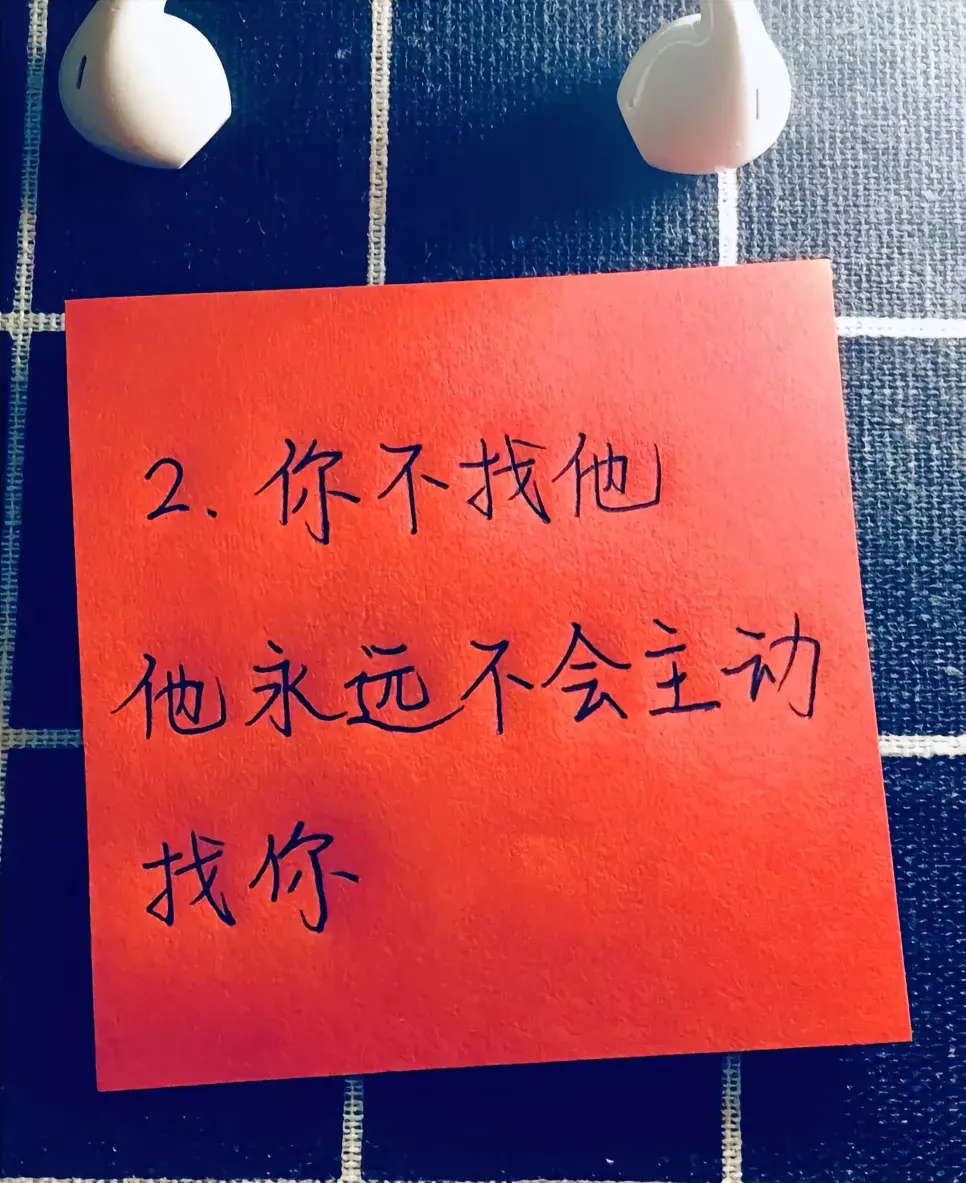 2、你不找他
他永远不会主动
找你